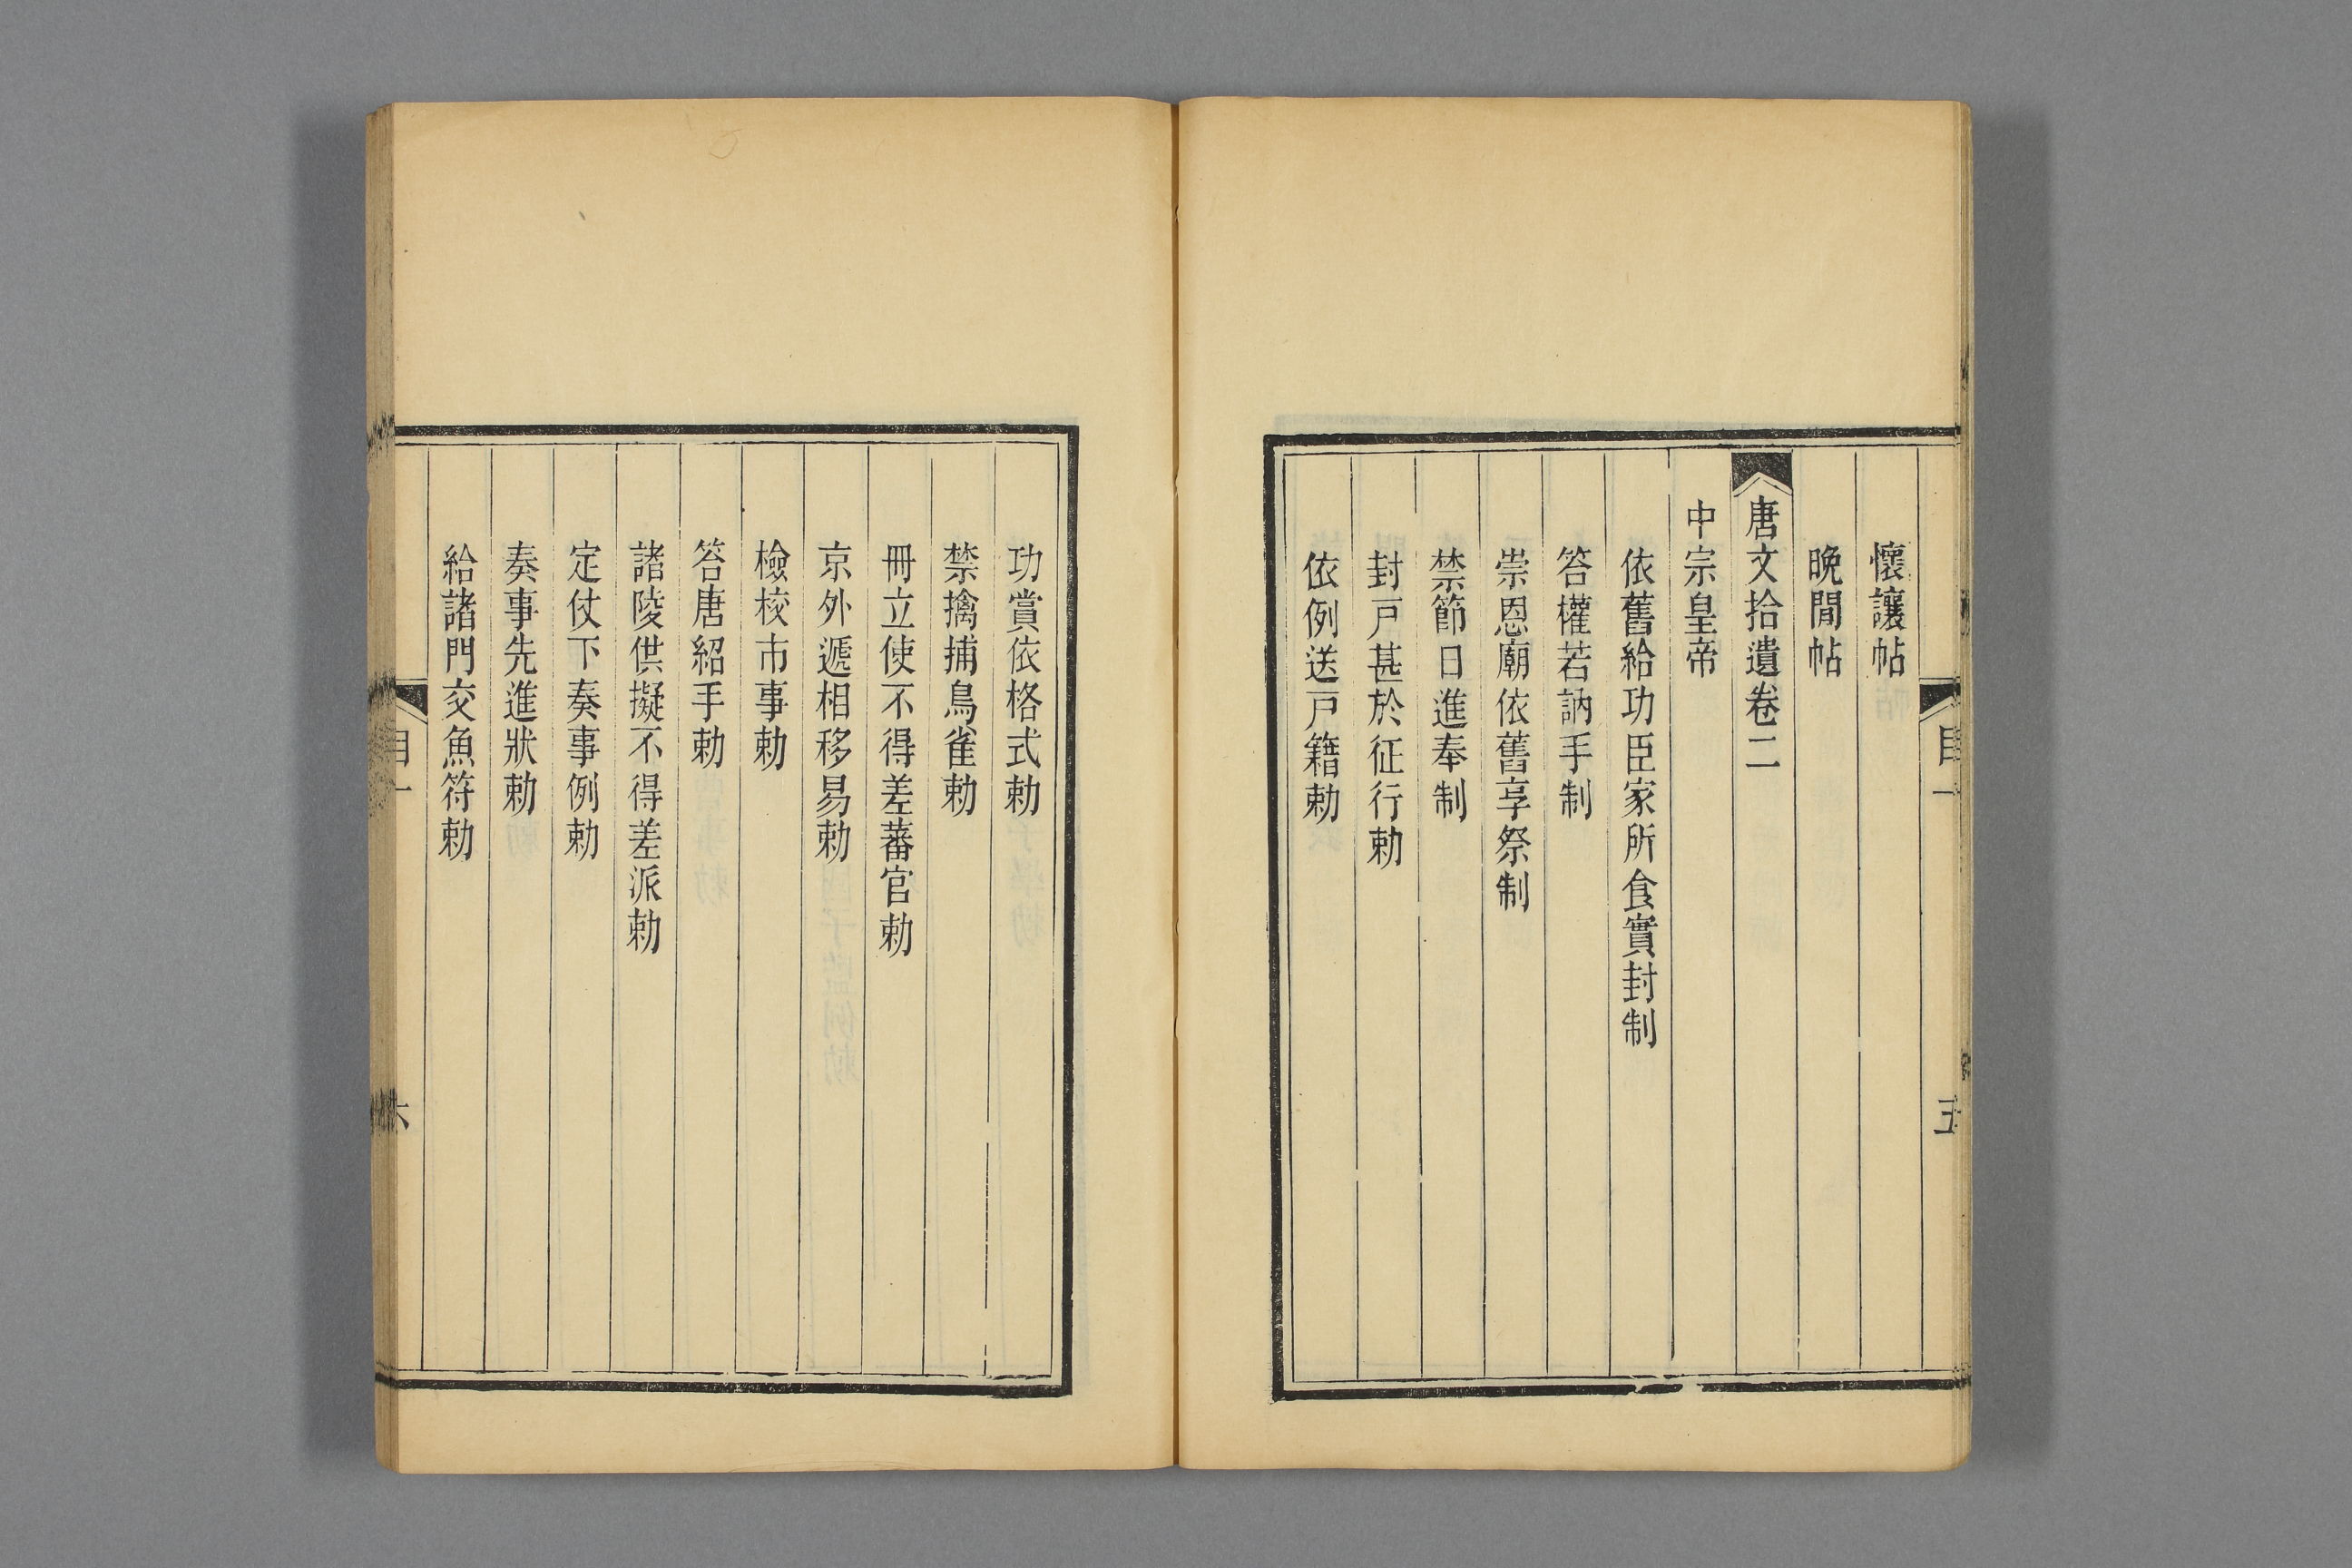 懷讓帖
晩閒帖
唐文拾遺卷二
中宗皇帝
依舊給功臣家所食實封制
答權若訥手制
崇恩廟依舊享祭制
禁節日進奉制
封戸甚於征行勅
依例送戸籍勅
目一
五
功賞依格式勅
禁擒捕鳥雀勅
冊立使不得差蕃官勅
京外遞相移易勅
檢校市事勅
答唐紹手勅
諸陵供擬不得差派勅
定仗下奏事例勅
奏事先進狀勅
給諸門交魚符勅
目一
六